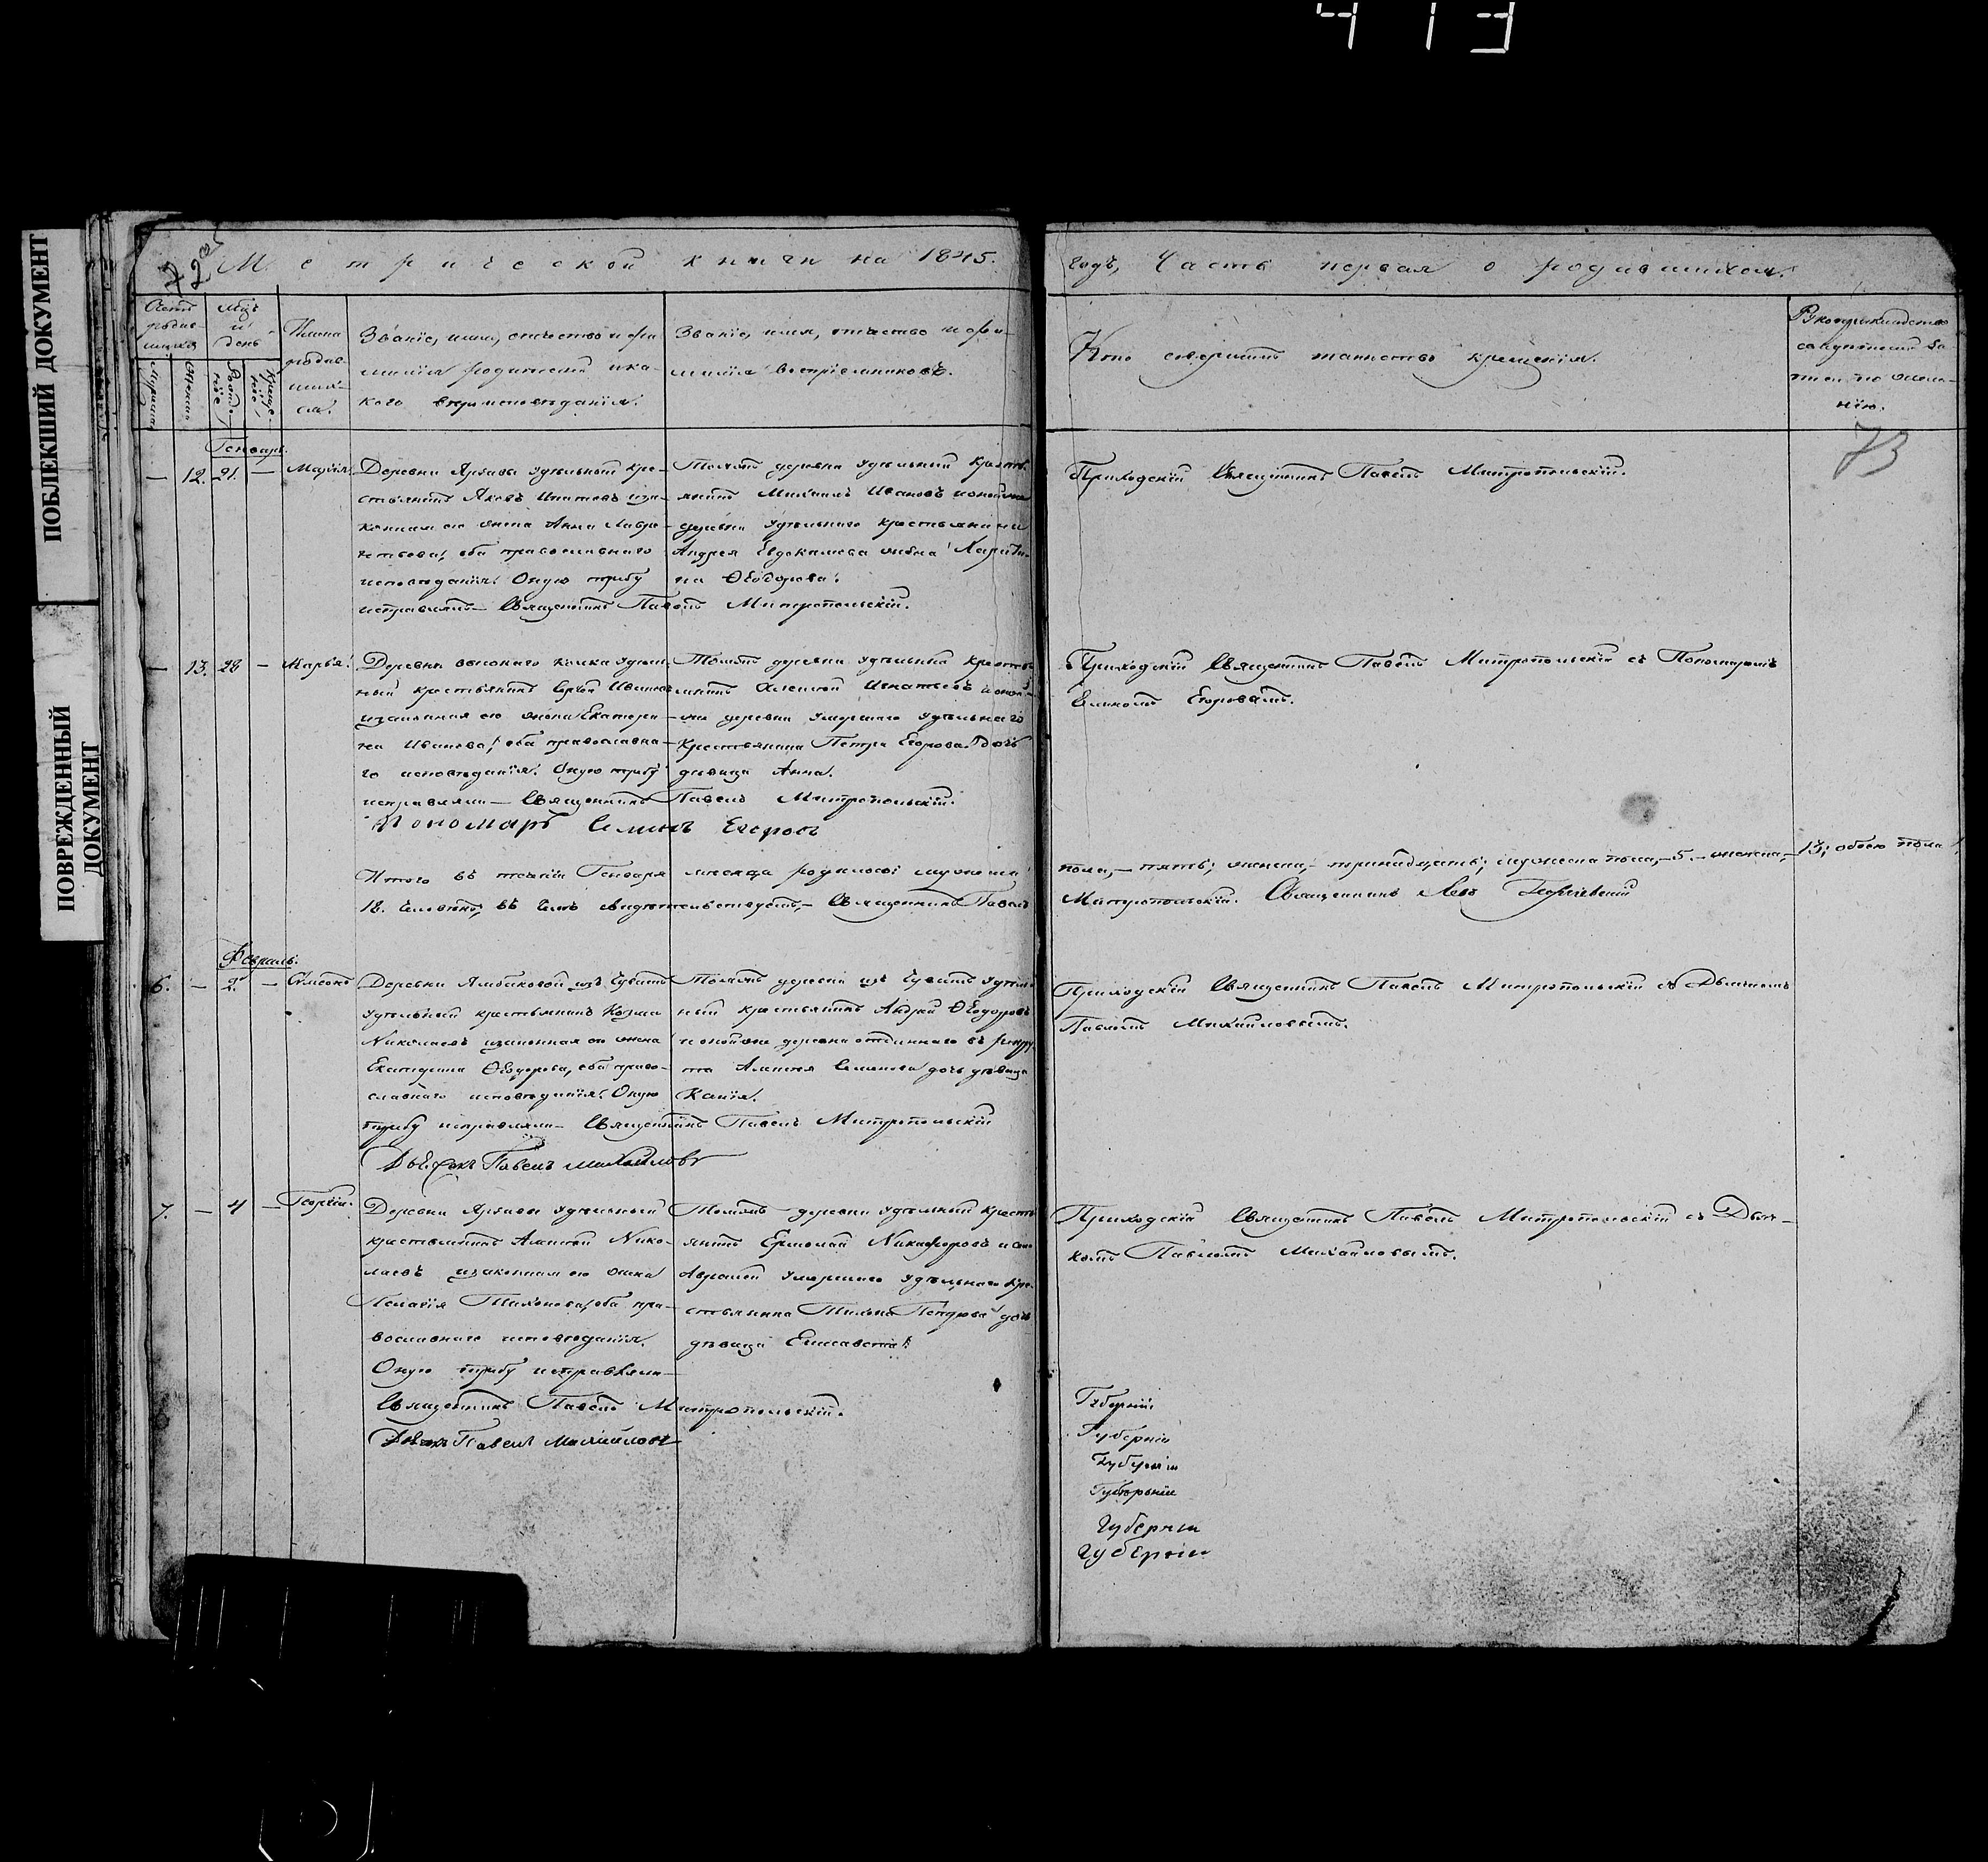 413
ПОБЛЕКШИЙ ДОКУМЕНТ
ПОВРЕЖДЕННЫЙ ДОКУМЕНТ
72об
Метрической книги на 1845.
годъ, Часть первая о родившихся.
Счетъ родив-
шихся
Мужеска
Женска
Мцъ и день
Рожде-
нiе
Креще-
нiе
Имена
родив-
ших-
ся.
Званiе, имя, отчество и фа-
милiя родителей и ка-
кого вѣроисповѣданiя.
Званiе, имя, отчество и фа-
милiя воспрiемниковъ.
Кто совершалъ таинство крещенiя.
Рукоприкладство
свидѣтелей за-
писи по жела-
нiю.
73
Генварь.
— 12. 21. — Марiя.
Деревни удѣльный кре-
стьянинъ Яковъ Игнатьевъ и за-
конная его жена Анна Лавре-
нтьева, оба православнаго
исповѣданiя. Оную требу
исправлялъ — Священникъ Павелъ Митропольскiй.
Тойже деревни удѣльный кресть-
янинъ Михаилъ Ивановъ и тойже
деревни удѣльнаго крестьянина
Андрея Евдокимова жена Харити-
на Ѳеодорова.
Приходскiй Священникъ Павелъ Митропольскiй.
— 13. 28 — Марья.
Деревни удѣль-
ный крестьянинъ Сергей Ивановъ
и законная его жена Екатери-
на Иванова, оба православна-
го исповѣданiя. Оную требу
исправляли — Священникъ Павелъ Митропольскiй.
Пономарь Семенъ Егоровъ
Тойже деревни удѣльный кресть-
янинъ Алексей Игнатьевъ и той-
же деревни умершаго удѣльнаго
крестьянина Петра Егорова дочь
дѣвица Анна.
Приходскiй Священникъ Павелъ Митропольскiй съ Пономаремъ
Семеномъ Егоровымъ.
Итого въ теченiи Генваря месяца родилось: мужеска
пола, — пять; женска, — тринадцать; мужеска пола, — 5. — женска, — 13; обоего пола
18. человѣкъ, въ чемъ свидѣтельствуетъ, — Священникъ Павелъ
Митропольскiй. Священникъ Левъ Георгiевскiй
Февраль.
6. — 2. — Сѵмеонъ
Деревни Ямбиковой изъ Чувашъ
удѣльный крестьянинъ Козма
Николаевъ и законная его жена
Екатерина Ѳеодорова, оба право-
славнаго исповѣданiя. Оную
требу исправляли — Священникъ Павелъ Митропольскiй
Дьячокъ Павелъ Михайловъ
Тойже деревни изъ Чувашъ удѣль-
ный крестьянинъ Андрей Ѳеодоровъ
и тойже деревни отданнаго въ рекру-
та Алексея Семенова дочь дѣвица
Приходскiй Священникъ Павелъ Митропольскiй съ Дьячкомъ
Павломъ Михайловымъ.
7. — 4 — Георгiй.
Деревни удѣльный
крестьянинъ Алексей Нико-
лаевъ и законная его жена
Пелагiя Тихонова, оба пра-
вославнаго исповѣданiя.
Оную требу исправляли —
Священникъ Павелъ Митропольскiй.
Дьячокъ Павелъ Михайловъ
Тойже деревни удѣльный кресть-
янинъ Ермолай Никифоровъ и
умершаго удѣльнаго кре-
стьянина Тихона Петрова дочь
дѣвица Елисавета.
Приходскiй Священникъ Павелъ Митропольскiй съ Дьяч-
комъ Павломъ Михайловымъ.
Губернiи
Губернiи
Губернiи
Губернiи
Губернiи
Губернiи